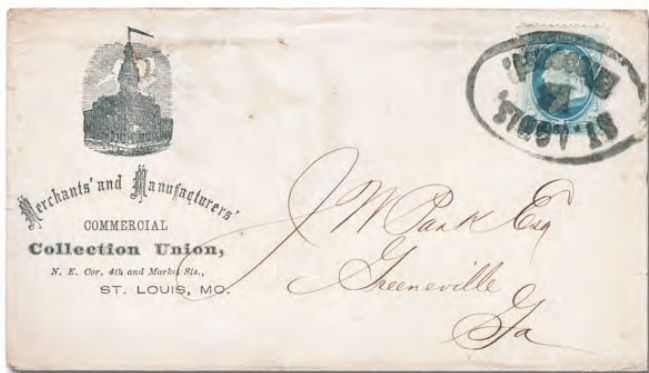 Merchants' and Manufacturers'
COMMERCIAL
Collection Union,
N. E. Cor. 4th and Market Sts.,
ST. LOUIS, MO.
ST. LOUIS,
J W Park Esq
Greeneville
Ga